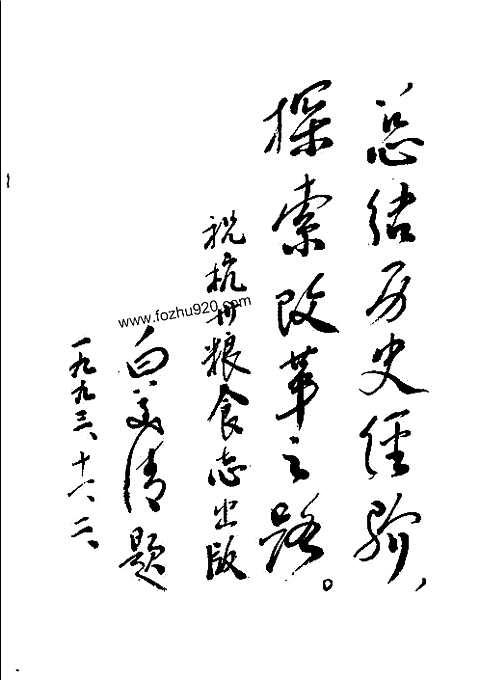 总结历史经验，
探索改革之路。
祝杭州粮食志出版
白美清题
一九九三、十一、二、
www.fozhu920.com